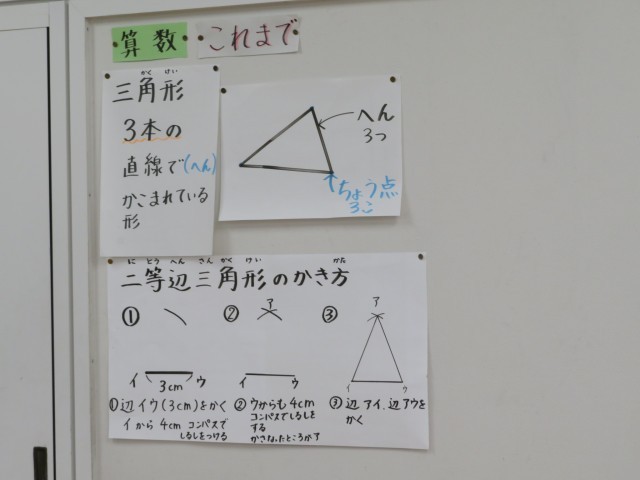 算数
これまで
三角形
かくけい
3本の
直線で(へん)
かこまれている
形
へん
3つ
ちょう点
3こ
にとうへんさんかくけい かた
二等辺三角形のかき方
① ② ③
ア
ア
イ 3cm ウ
イ ウ
イ ウ
①辺イウ(3cm)をかく
イから4cm コンパスで
しるしをつける
②ウからも4cm
コンパスでしるしを
する
かさなったところがア
③辺アイ、辺アウを
かく